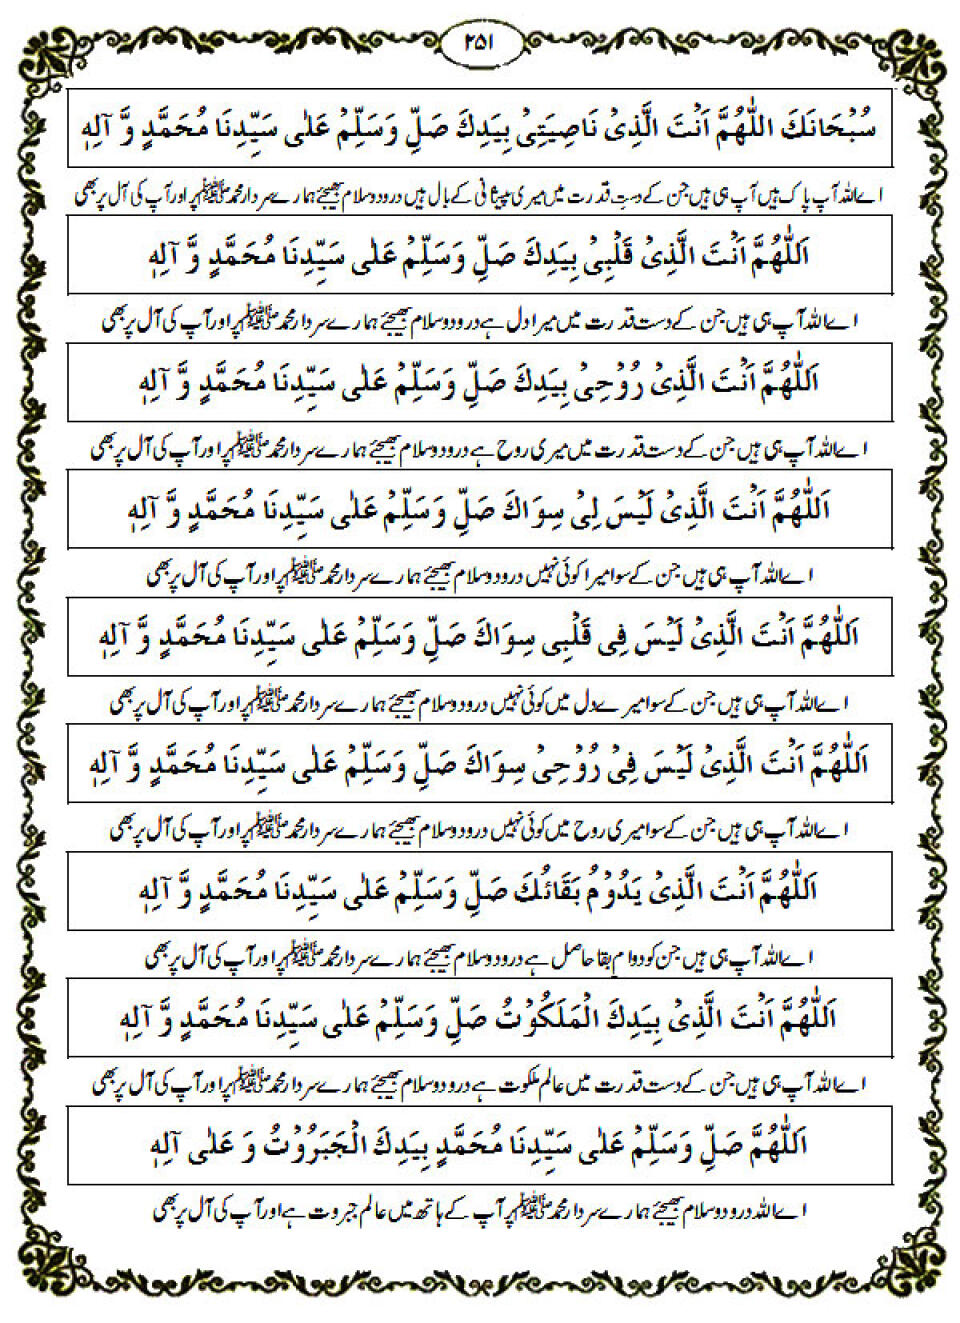 ۲۵۱
سُبْحَانَكَ اللّٰهُمَّ اَنْتَ الَّذِیْ نَاصِیَتِیْ بِیَدِكَ صَلِّ وَسَلِّمْ عَلٰی سَیِّدِنَا مُحَمَّدٍ وَّ آلِهٖ
اے اللہ آپ پاک ہیں آپ ہی ہیں جن کے دست قدرت میں میری پیشانی کے بال ہیں درود وسلام بھیجئے ہمارے سردار محمد ﷺ پر اور آپ کی آل پر بھی
اَللّٰهُمَّ اَنْتَ الَّذِیْ قَلْبِیْ بِیَدِكَ صَلِّ وَسَلِّمْ عَلٰی سَیِّدِنَا مُحَمَّدٍ وَّ آلِهٖ
اے اللہ آپ ہی ہیں جن کے دست قدرت میں میرا دل ہے درود وسلام بھیجئے ہمارے سردار محمد ﷺ پر اور آپ کی آل پر بھی
اَللّٰهُمَّ اَنْتَ الَّذِیْ رُوْحِیْ بِیَدِكَ صَلِّ وَسَلِّمْ عَلٰی سَیِّدِنَا مُحَمَّدٍ وَّ آلِهٖ
اے اللہ آپ ہی ہیں جن کے دست قدرت میں میری روح ہے درود وسلام بھیجئے ہمارے سردار محمد ﷺ پر اور آپ کی آل پر بھی
اَللّٰهُمَّ اَنْتَ الَّذِیْ لَیْسَ لِیْ سِوَاكَ صَلِّ وَسَلِّمْ عَلٰی سَیِّدِنَا مُحَمَّدٍ وَّ آلِهٖ
اے اللہ آپ ہی ہیں جن کے سوا میرا کوئی نہیں درود وسلام بھیجئے ہمارے سردار محمد ﷺ پر اور آپ کی آل پر بھی
اَللّٰهُمَّ اَنْتَ الَّذِیْ لَیْسَ فِی قَلْبِی سِوَاكَ صَلِّ وَسَلِّمْ عَلٰی سَیِّدِنَا مُحَمَّدٍ وَّ آلِهٖ
اے اللہ آپ ہی ہیں جن کے سوا میرے دل میں کوئی نہیں درود وسلام بھیجئے ہمارے سردار محمد ﷺ پر اور آپ کی آل پر بھی
اَللّٰهُمَّ اَنْتَ الَّذِیْ لَیْسَ فِیْ رُوْحِیْ سِوَاكَ صَلِّ وَسَلِّمْ عَلٰی سَیِّدِنَا مُحَمَّدٍ وَّ آلِهٖ
اے اللہ آپ ہی ہیں جن کے سوا میری روح میں کوئی نہیں درود وسلام بھیجئے ہمارے سردار محمد ﷺ پر اور آپ کی آل پر بھی
اَللّٰهُمَّ اَنْتَ الَّذِیْ یَدُوْمُ بَقَائُكَ صَلِّ وَسَلِّمْ عَلٰی سَیِّدِنَا مُحَمَّدٍ وَّ آلِهٖ
اے اللہ آپ ہی ہیں جن کو دوام بقا حاصل ہے درود وسلام بھیجئے ہمارے سردار محمد ﷺ پر اور آپ کی آل پر بھی
اَللّٰهُمَّ اَنْتَ الَّذِیْ بِیَدِكَ الْمَلَكُوْتُ صَلِّ وَسَلِّمْ عَلٰی سَیِّدِنَا مُحَمَّدٍ وَّ آلِهٖ
اے اللہ آپ ہی ہیں جن کے دست قدرت میں عالم ملکوت ہے درود وسلام بھیجئے ہمارے سردار محمد ﷺ پر اور آپ کی آل پر بھی
اَللّٰهُمَّ صَلِّ وَسَلِّمْ عَلٰی سَیِّدِنَا مُحَمَّدٍ بِیَدِكَ الْجَبَرُوْتُ وَ عَلٰی آلِهٖ
اے اللہ درود وسلام بھیجئے ہمارے سردار محمد ﷺ پر آپ کے ہاتھ میں عالم جبروت ہے اور آپ کی آل پر بھی